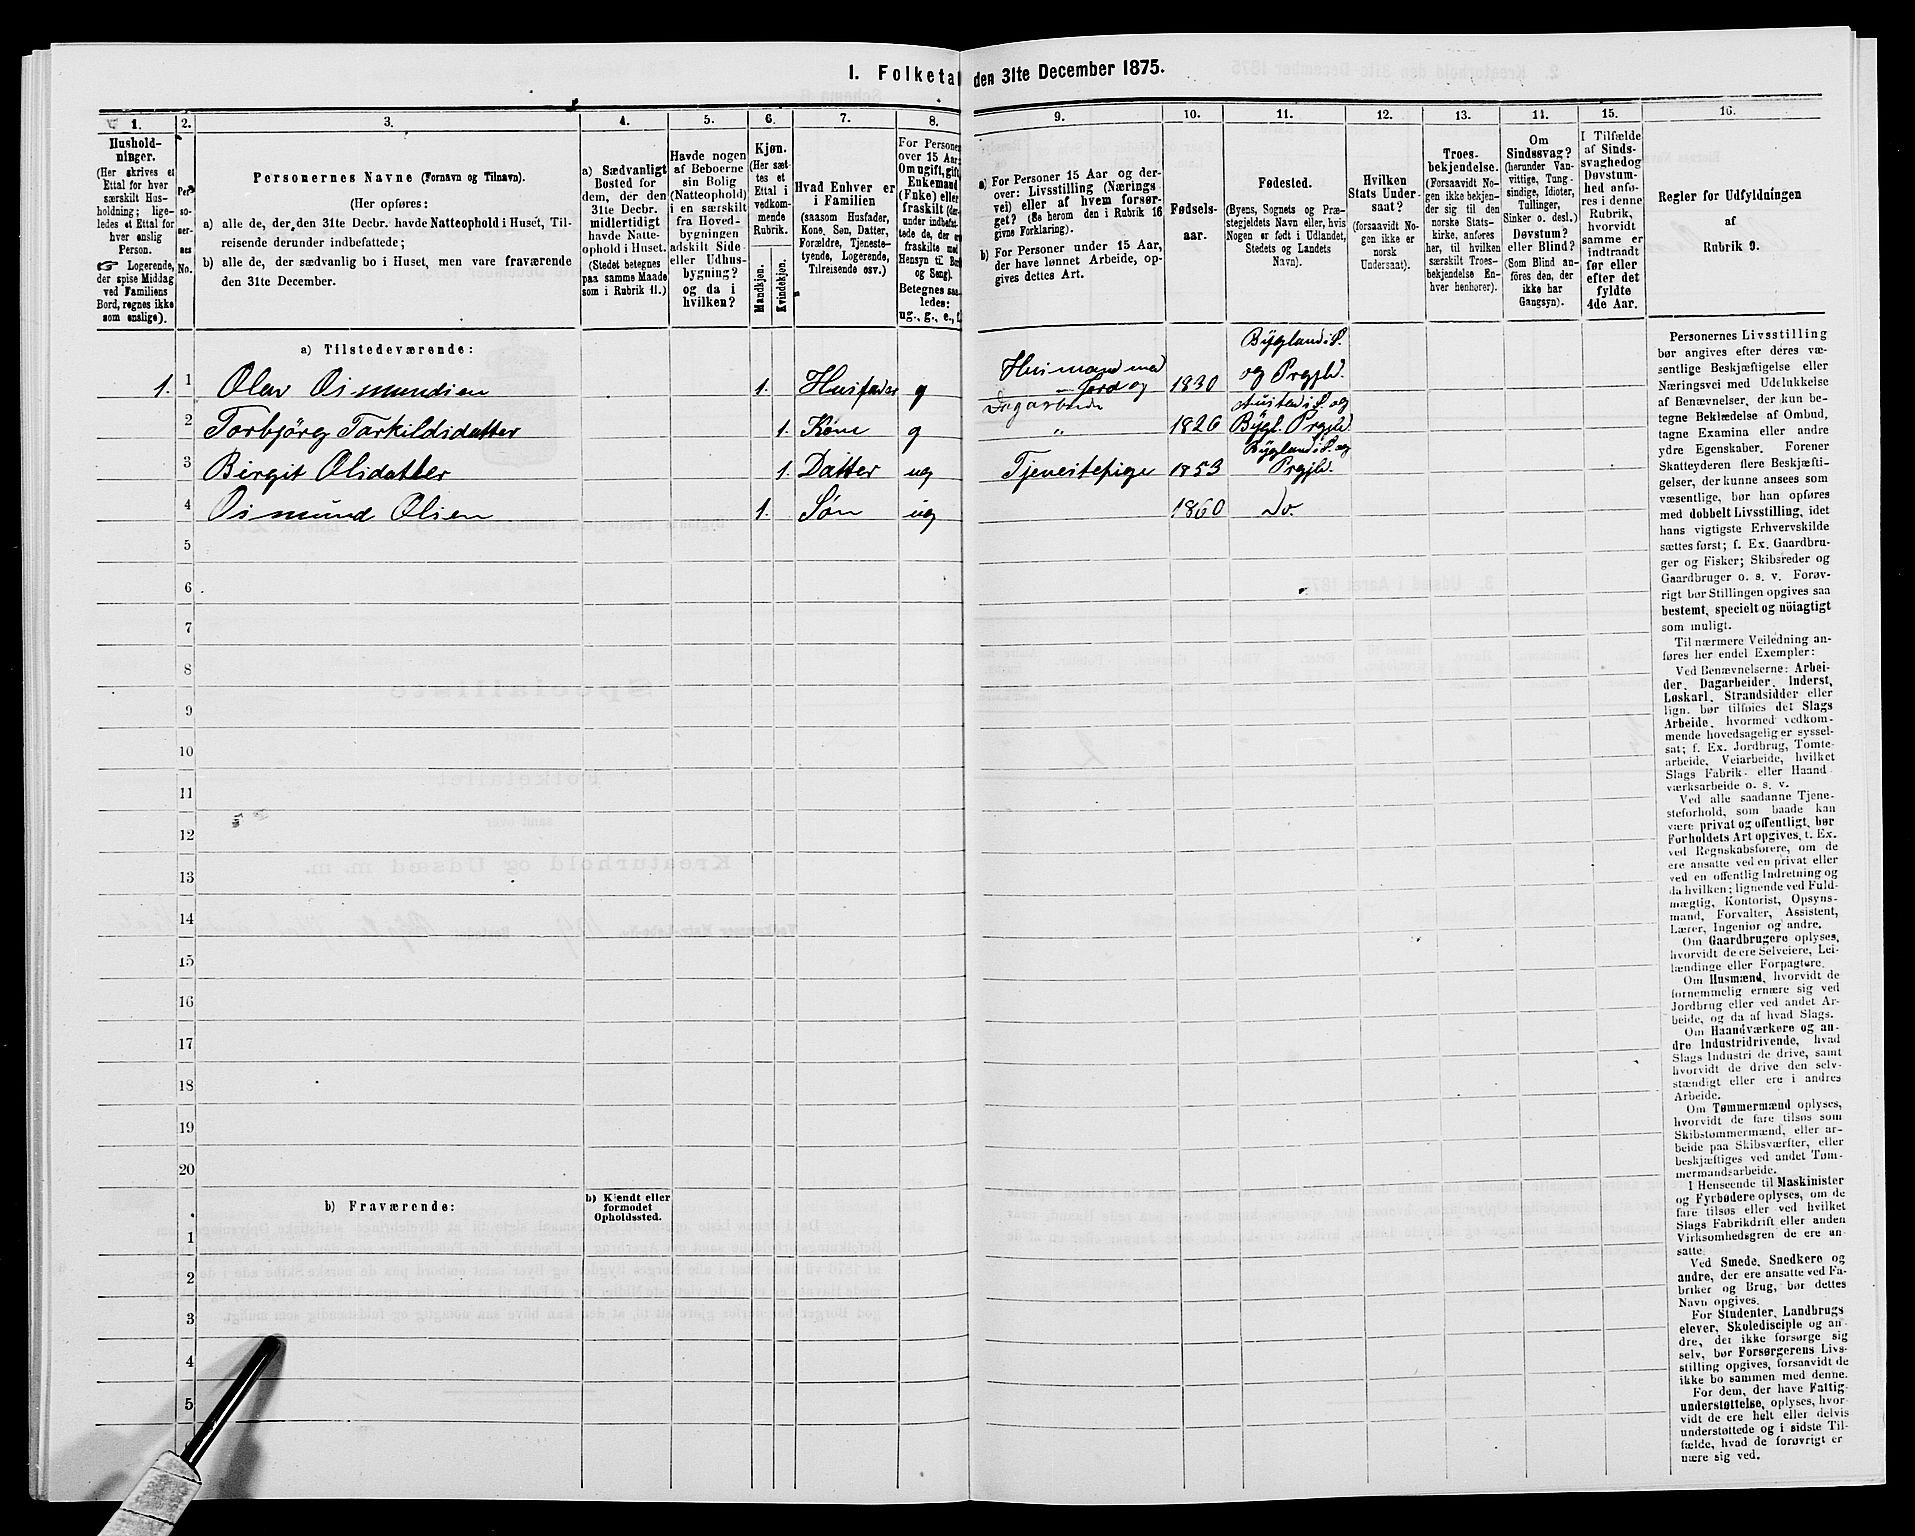 I. Folketal den 31te December 1875.
1.
2.
3.
4.
5.
6.
7.
8.
9.
10.
11.
12.
13.
14.
15.
16.
Hushold-
ninger.
(Her skrives et
Ettal for hver
særskilt Hus-
holdning; lige-
ledes et Ettal for
hver enslig
Person.
☞ Logerende,
der spise Middag
ved Familiens
Bord, regnes ikke
som enslige).
Per-
so-
ner-
nes
No.
Personernes Navne (Fornavn og Tilnavn).
(Her opføres:
a) alle de, der den 31te Decbr. havde Natteophold i Huset, Til-
reisende derunder indbefattede;
b) alle de, der sædvanlig bo i Huset, men vare fraværende
den 31te December.
a) Sædvanligt
Bosted for
dem, der den
31te Decbr.
midlertidigt
havde Natte-
ophold i Huset.
(Stedet betegnes
paa samme Maade
som i Rubrik 11.)
Havde nogen
af Beboerne
sin Bolig
(Natteophold)
i en særskilt
fra Hoved-
bygningen
adskilt Side-
eller Udhus-
bygning?
og da i
hvilken?
Kjøn.
(Her sæt-
tes et
Ettal i
vedkom-
mende
Rubrik.
Mandkjøn.
Kvindekjøn.
Hvad Enhver er
i Familien
(saasom Husfader,
Kone, Søn, Datter,
Forældre, Tjeneste-
tyende, Logerende,
Tilreisende osv.)
For Personer
over 15 Aar:
Om ugift, gift,
Enkemand
(Enke) eller
fraskilt (der-
under indbefat-
tede de, der ere
fraskilte med
Hensyn til Bord
og Seng).
Betegnes saa-
ledes:
ug., g., e., f.
a) For Personer 15 Aar og der-
over: Livsstilling (Nærings-
vei) eller af hvem forsør-
get? (Se herom den i Rubrik 16
givne Forklaring).
b) For Personer under 15 Aar,
der have lønnet Arbeide, op-
gives dettes Art.
Fødsels-
aar.
Fødested.
(Byens, Sognets og Præ-
stegjeldets Navn eller, hvis
Nogen er født i Udlandet,
Stedets og Landets
Navn).
Hvilken
Stats Under-
saat?
(forsaavidt No-
gen ikke er
norsk
Undersaat).
Troes-
bekjendelse.
(Forsaavidt No-
gen ikke bekjen-
der sig til den
norske Stats-
kirke, anføres
her, til hvilken
særskilt Troes-
bekjendelse En-
hver henhører).
Om
Sindssvag?
(herunder Van-
vittige, Tung-
sindige, Idioter,
Tullinger,
Sinker o. desl.)
Døvstum?
eller Blind?
(Som Blind an-
føres den, der
ikke har
Gangsyn).
I Tilfælde
af Sinds-
svaghed og
Døvstum-
hed anfø-
res i denne
Rubrik,
hvorvidt
samme er
indtraadt
før eller
efter det
fyldte
4de Aar.
Regler for Udfyldningen
af
Rubrik 9.
a) Tilstedeværende:
1. 1 Olav Osmundsen 1. Husfader g Husmand med Jord og Dagarbeide 1830 Bygland i S. og Prgjld.
2 Torbjörg Tarkildsdatter 1. Kone g " 1826 Austad i S. og Bygl. Prgjld.
3 Birgit Olsdatter 1. Datter ug Tjenestepige 1853 Bygland i S. og Prgjld.
4 Osmund Olsen 1. Søn ug 1860 Do.
5
6
7
8
9
10
11
12
13
14
15
16
17
18
19
20
b) Fraværende:
b) Kjendt eller
formodet
Opholdssted.
1
2
3
4
5
Personernes Livsstilling
bør angives efter deres væ-
sentlige Beskjæftigelse eller
Næringsvei med Udelukkelse
af Benævnelser, der kun be-
tegne Beklædelse af Ombud,
tagne Examina eller andre
ydre Egenskaber. Forener
Skatteyderen flere Beskjæfti-
gelser, der kunne ansees som
væsentlige, bør han opføres
med dobbelt Livsstilling, idet
hans vigtigste Erhvervskilde
sættes først; f. Ex. Gaardbru-
ger og Fisker; Skibsreder og
Gaardbruger o. s. v. Forøv-
rigt bør Stillingen opgives saa
bestemt, specielt og nöiagtigt
som muligt.
Til nærmere Veiledning an-
føres her endel Exempler:
Ved Benævnelserne: Arbei-
der, Dagarbeider, Inderst,
Løskarl, Strandsidder eller
lign. bør tilføies det Slags
Arbeide, hvormed vedkom-
mende hovedsagelig er syssel-
sat; f. Ex. Jordbrug, Tomte-
arbeide, Veiarbeide, hvilket
Slags Fabrik- eller Haand-
værksarbeide o. s. v.
Ved alle saadanne Tjene-
steforhold, som baade kan
være privat og offentligt, bør
Forholdets Art opgives, t. Ex.
ved Regnskabsførere, om de
ere ansatte ved en privat eller
ved en offentlig Indretning og
da hvilken; lignende ved Fuld-
mægtig, Kontorist, Opsyns-
mand, Forvalter, Assistent,
Lærer, Ingeniør og andre.
Om Gaardbrugere oplyses,
hvorvidt de ere Selveiere, Lei-
lændinge eller Forpagtere.
Om Husmænd, hvorvidt de
fornemmelig ernære sig ved
Jordbrug eller ved andet Ar-
beide, og da af hvad Slags.
Om Haandværkere og an-
dre Industridrivende, hvad
Slags Industri de drive, samt
hvorvidt de drive den selv-
stændigt eller ere i andres
Arbeide.
Om Tømmermænd oplyses,
hvorvidt de fare tilsøs som
Skibstømmermænd, eller ar-
beide paa Skibsværfter, eller
beskjæftiges ved andet Tøm-
mermandsarbeide.
I Henseende til Maskinister
og Fyrbødere oplyses, om de
fare tilsøs eller ved hvilket
Slags Fabrikdrift eller anden
Virksomhedsgren de ere an-
satte.
Ved Smede, Snedkere og
andre, der ere ansatte ved Fa-
briker og Brug, bør dettes
Navn opgives.
For Studenter, Landbrugs-
elever, Skoledisciple og an-
dre, der ikke forsørge sig
selv, bør Forsørgerens Livs-
stilling opgives, forsaavidt de
ikke bo sammen med denne.
For dem, der have Fattig-
understøttelse, oplyses, hvor-
vidt de ere helt eller delvis
understøttede og i sidste Til-
fælde, hvad de forøvrigt er
nære sig ved.